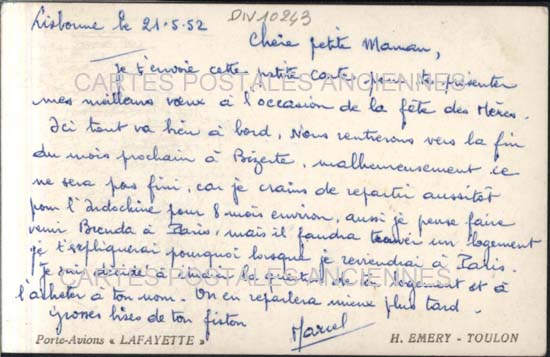 Lisbonne le 21-5-52
DIV10243
Chère petite Maman,
Je t'envoie cette petite carte pour te présenter
CARTES POSTALES ANCIENNES
mes meilleurs vœux à l'occasion de la fête des Mères.
Ici tout va bien à bord, Nous rentrerons vers la fin
du mois prochain à Bizerte, malheureusement ce
ne sera pas fini, car je crains de repartir aussitôt
pour l'Indochine pour 8 mois environ, aussi je pense faire
venir Brenda à Paris, mais il faudra trouver un logement
je t'expliquerai pourquoi lorsque je reviendrai à Paris.
Je suis décidé à la de logement et à
CARTES POSTALES ANCIENNES
l'acheter à ton nom. On en reparlera mieux plus tard.
Grosses bises de ton fiston
Marcel
Porte-Avions « LAFAYETTE »
H. EMERY - TOULON